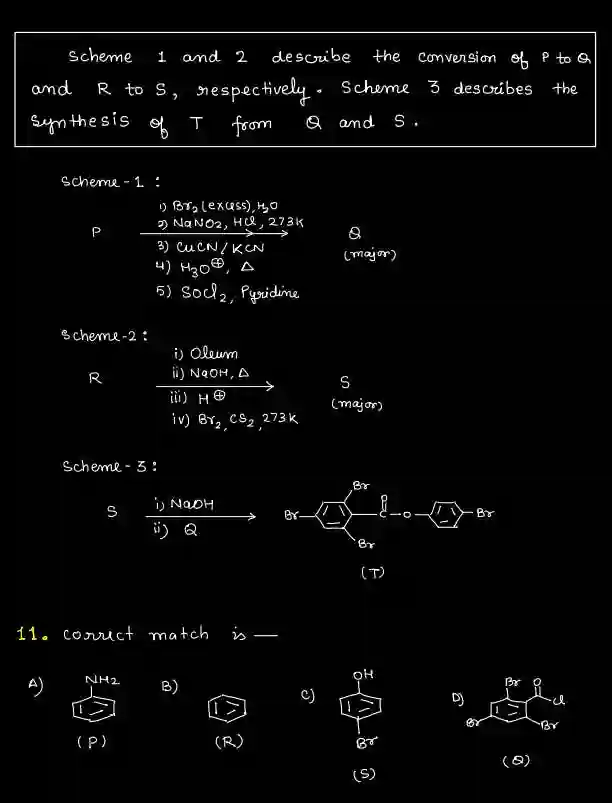 Scheme 1 and 2 describe the conversion of P to Q
and R to S, respectively. Scheme 3 describes the
synthesis of T from Q and S.
Scheme-1 :
i) Br2 (excess), H2O
2) NaNO2, HCl, 273K
P
Q
3) CuCN/KCN
(major)
4) H3O⊕, Δ
5) SOCl2, Pyridine
Scheme-2 :
i) Oleum
ii) NaOH, Δ
R
S
iii) H⊕
(major)
iv) Br2, CS2, 273K
Scheme-3 :
Br
S
i) NaOH
O
Br
C
O
Br
ii) Q
Br
(T)
11. correct match is —
A)
NH2
B)
C)
OH
D)
Br
O
Cl
Br
Br
(P)
(R)
Br
(Q)
(S)